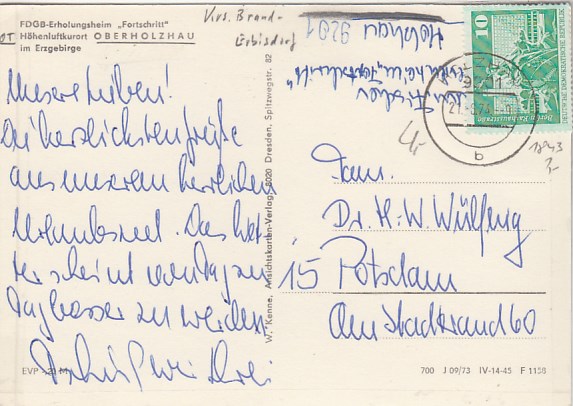 FDGB-Erholungsheim „Fortschritt"
Höhenluftkurort OBERHOLZHAU
im Erzgebirge
OT
Krs. Brand-
Erbisdorf
9201
Holzhau
Unsere Lieben!
Die herzlichsten Grüße
aus unserem herrlichen
Urlaubsort. Das Wet-
ter scheint von Tag zu
Tag besser zu werden.
Drei
EVP
W. Kenne, Ansichtskarten-Verlag, 8020 Dresden, Spitzwegstr. 82
10
DEUTSCHE DEMOKRATISCHE REPUBLIK
b
1843
Fam.
Dr. H.-W. Wülfing
15 Potsdam
Am Stadtrand 60
700 J 09/73 IV-14-45 F 1158